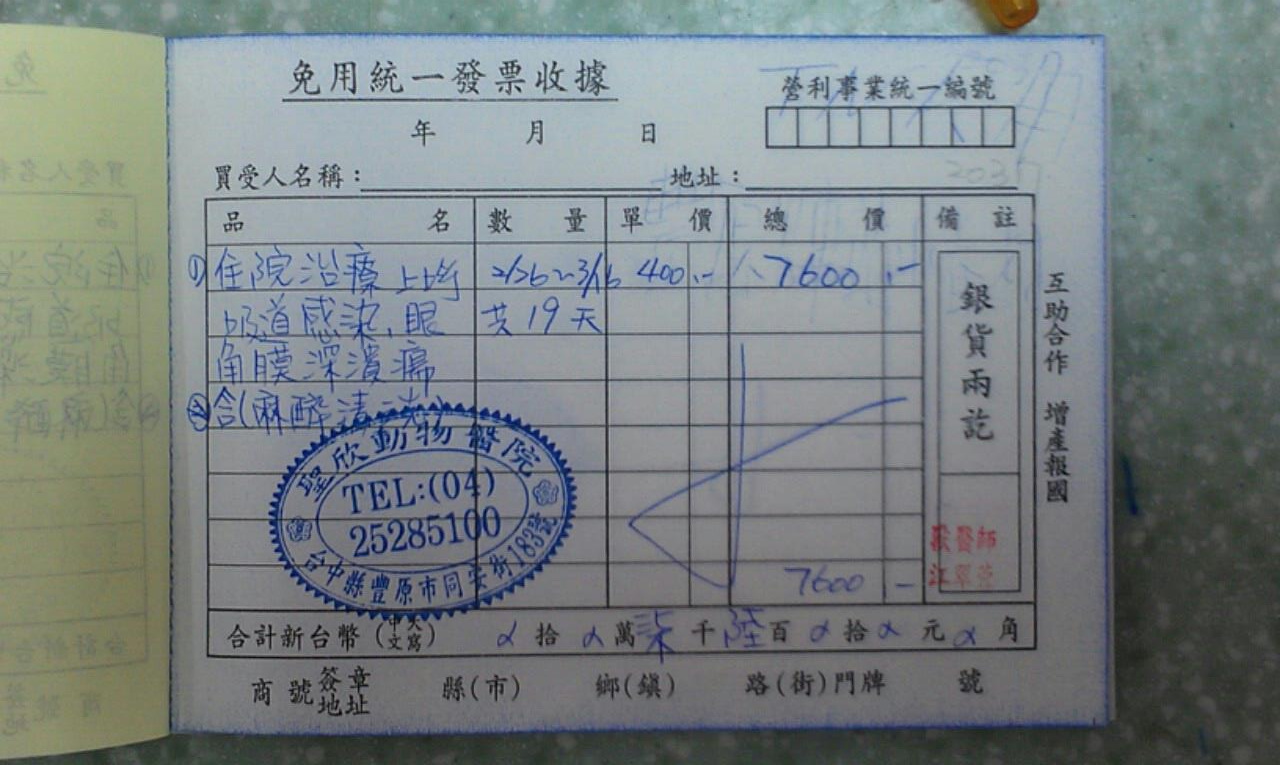 免用統一發票收據
營利事業統一編號
年 月 日
買受人名稱： 地址：
品名 數量 單價 總價 備註
①住院治療 上呼 2/26~3/16 400.- 7600.-
吸道感染,眼 共19天
角膜深潰瘍
②含(麻醉清洗)
聖欣動物醫院
TEL:(04)
25285100
台中縣豐原市同安街183號
銀貨兩訖
獸醫師
互助合作 增產報國
7600 -
合計新台幣(中文大寫) 拾 萬 柒 千 陸 百 拾 元 角
商號簽章地址 縣(市) 鄉(鎮) 路(街)門牌 號